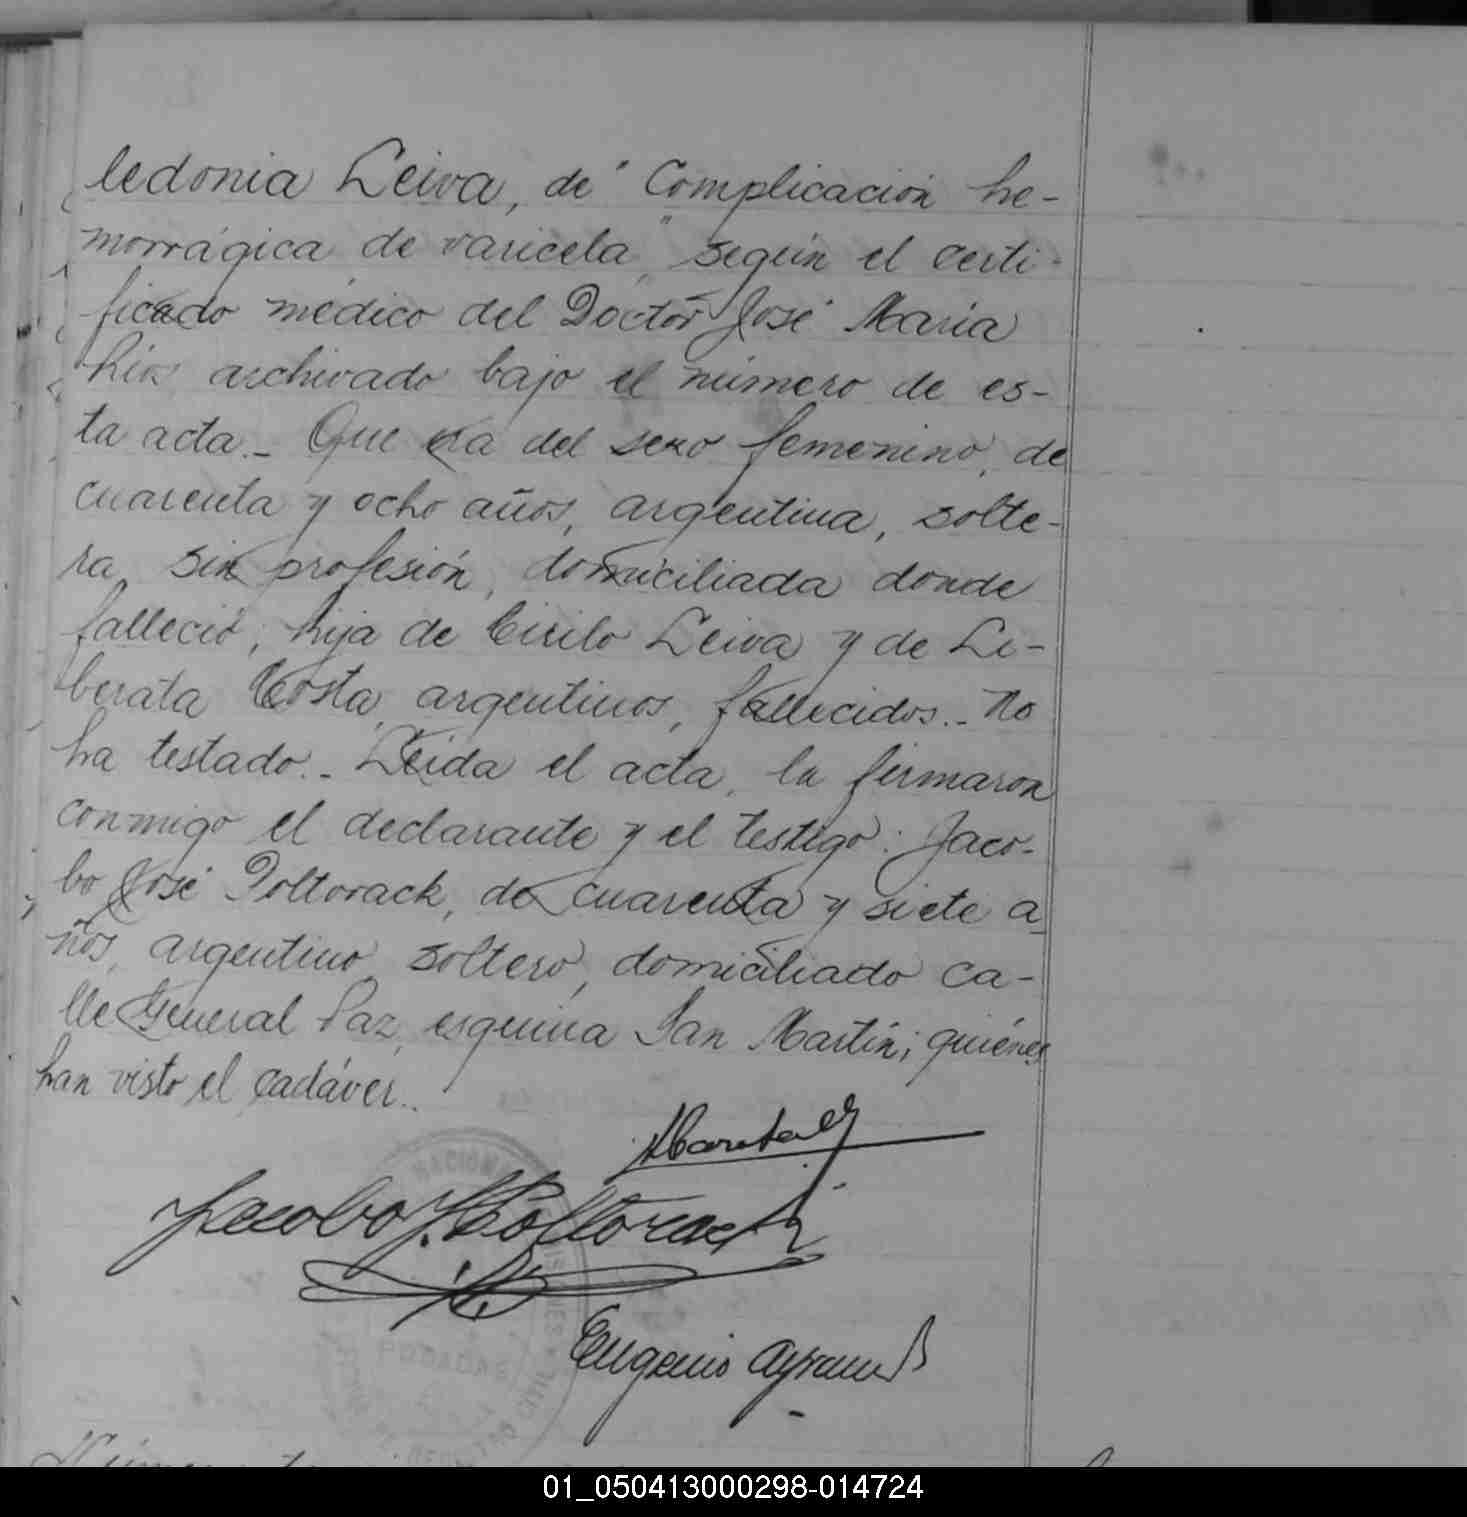 ledonia Leiva, de "Complicación he-
morrágica de varicela" según el certi-
ficado médico del Doctor José María
archivado bajo el número de es-
ta acta.- Que era del sexo femenino, de
cuarenta y ocho años, argentina, solte-
ra, sin profesión, domiciliada donde
falleció, hija de Cirilo Leiva y de Li-
berata Costa, argentinos, fallecidos.- No
ha testado.- Leída el acta, la firmaron
conmigo el declarante y el testigo: Jaco-
bo José Poltorack, de cuarenta y siete a
ños, argentino, soltero, domiciliado ca-
lle General Paz, esquina San Martín; quiénes
han visto el cadáver..
Jacobo J. Poltorack
NACIONAL
MISIONES
POSADAS
REGISTRO CIVIL
Eugenio
01_050413000298-014724